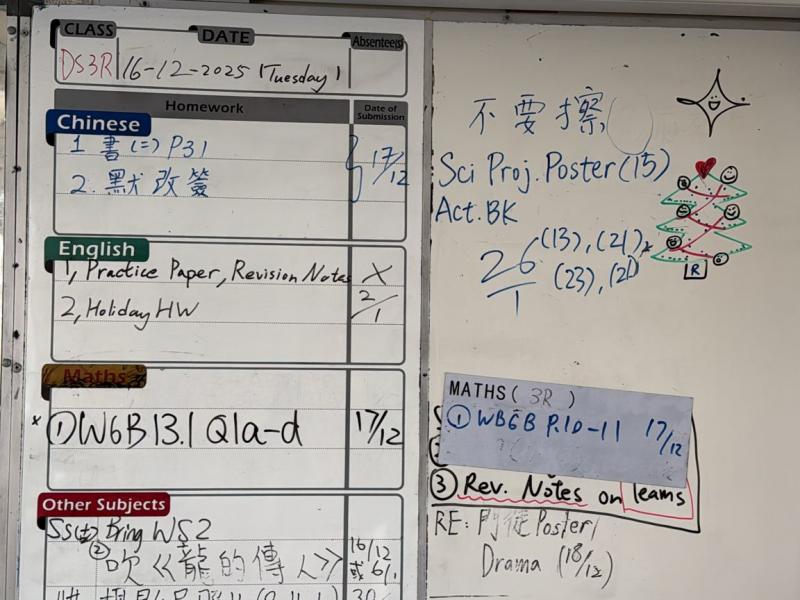 CLASS DATE Absentee(s)
DS3R 16-12-2025 (Tuesday)
Homework Date of Submission
Chinese
1. 書(二) P31
2. 默改簽
17/12
English
1, Practice Paper, Revision Notes X
2, Holiday HW 2/1
Maths
* ① W6B13.1 Q1a-d 17/12
Other Subjects
Bring WS2
② 吹《龍的傳人》 16/12 或 6/1
不要擦
Sci Proj. Poster (15)
Act. BK
26/1 (13), (21),
(23), (21)
R
MATHS (3R)
① WB6B P.10-11 17/12
③ Rev. Notes on Teams
RE: 門徒 Poster/
Drama (18/12)